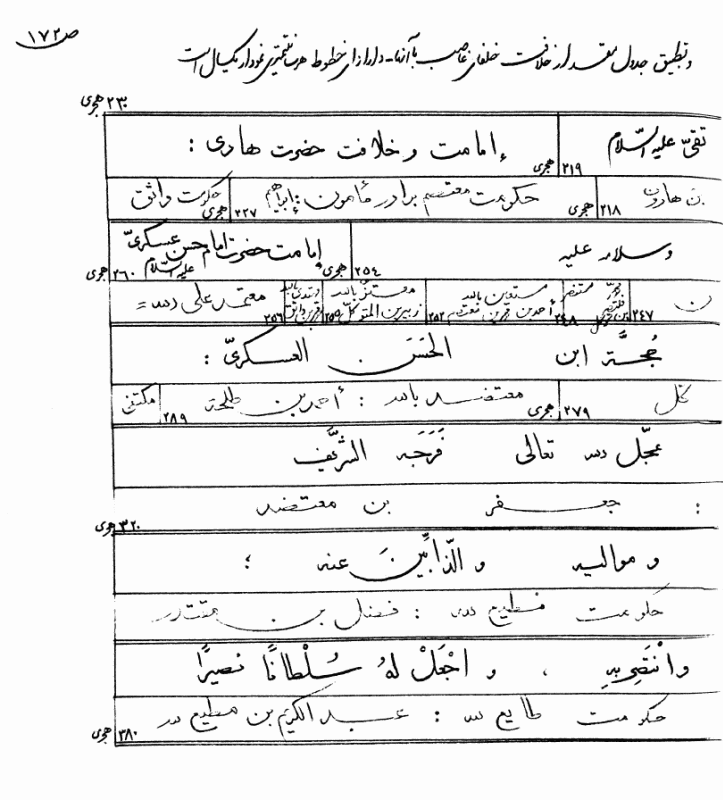 ص ۱۷۲
و تطبیق جدال مقدار خلافت خلفای غاصب با آنها - دارای خطوط هر سانتیمتری نمودار یکسال است
۲۳۰ هجری
تقیّ علیه السّلام ۲۱۹ هجری إمامت و خلافت حضرت هادی :
بن هارون ۲۱۸ هجری حکومت معتصم برادر مأمون : إبراهیم ۲۲۷ هجری حکومت واثق
وسلامه علیه ۲۵۴ هجری إمامت حضرت امام حسن عسکریّ علیه السّلام ۲۶۰ هجری
ن ۲۴۷ منتصر ۲۴۸ مستعین بالله أحمد بن معتصم ۲۵۲ معتزّ بالله زبیر بن المتوکّل ۲۵۵ مهتدی بالله ۲۵۶ معتمد علی الله =
حُجَّة ابن الحَسَن العسکریّ :
کّل ۲۷۹ هجری معتضد بالله : أحمد بن طلحة ۲۸۹ مکتفی
عجّل الله تعالی فَرَجَه الشریف
: جعفر بن معتضد
۳۲۰ هجری
و موالیه و الذّابّینَ عنه ؛
حکومت مطیع لله : فضل بن مقتدر
وانْتَصِر بِهِ ، و اجْعَلْ لهُ سُلْطانًا نصیرًا
حکومت طایع لله : عبد الکریم بن مطیع لله
۳۸۰ هجری